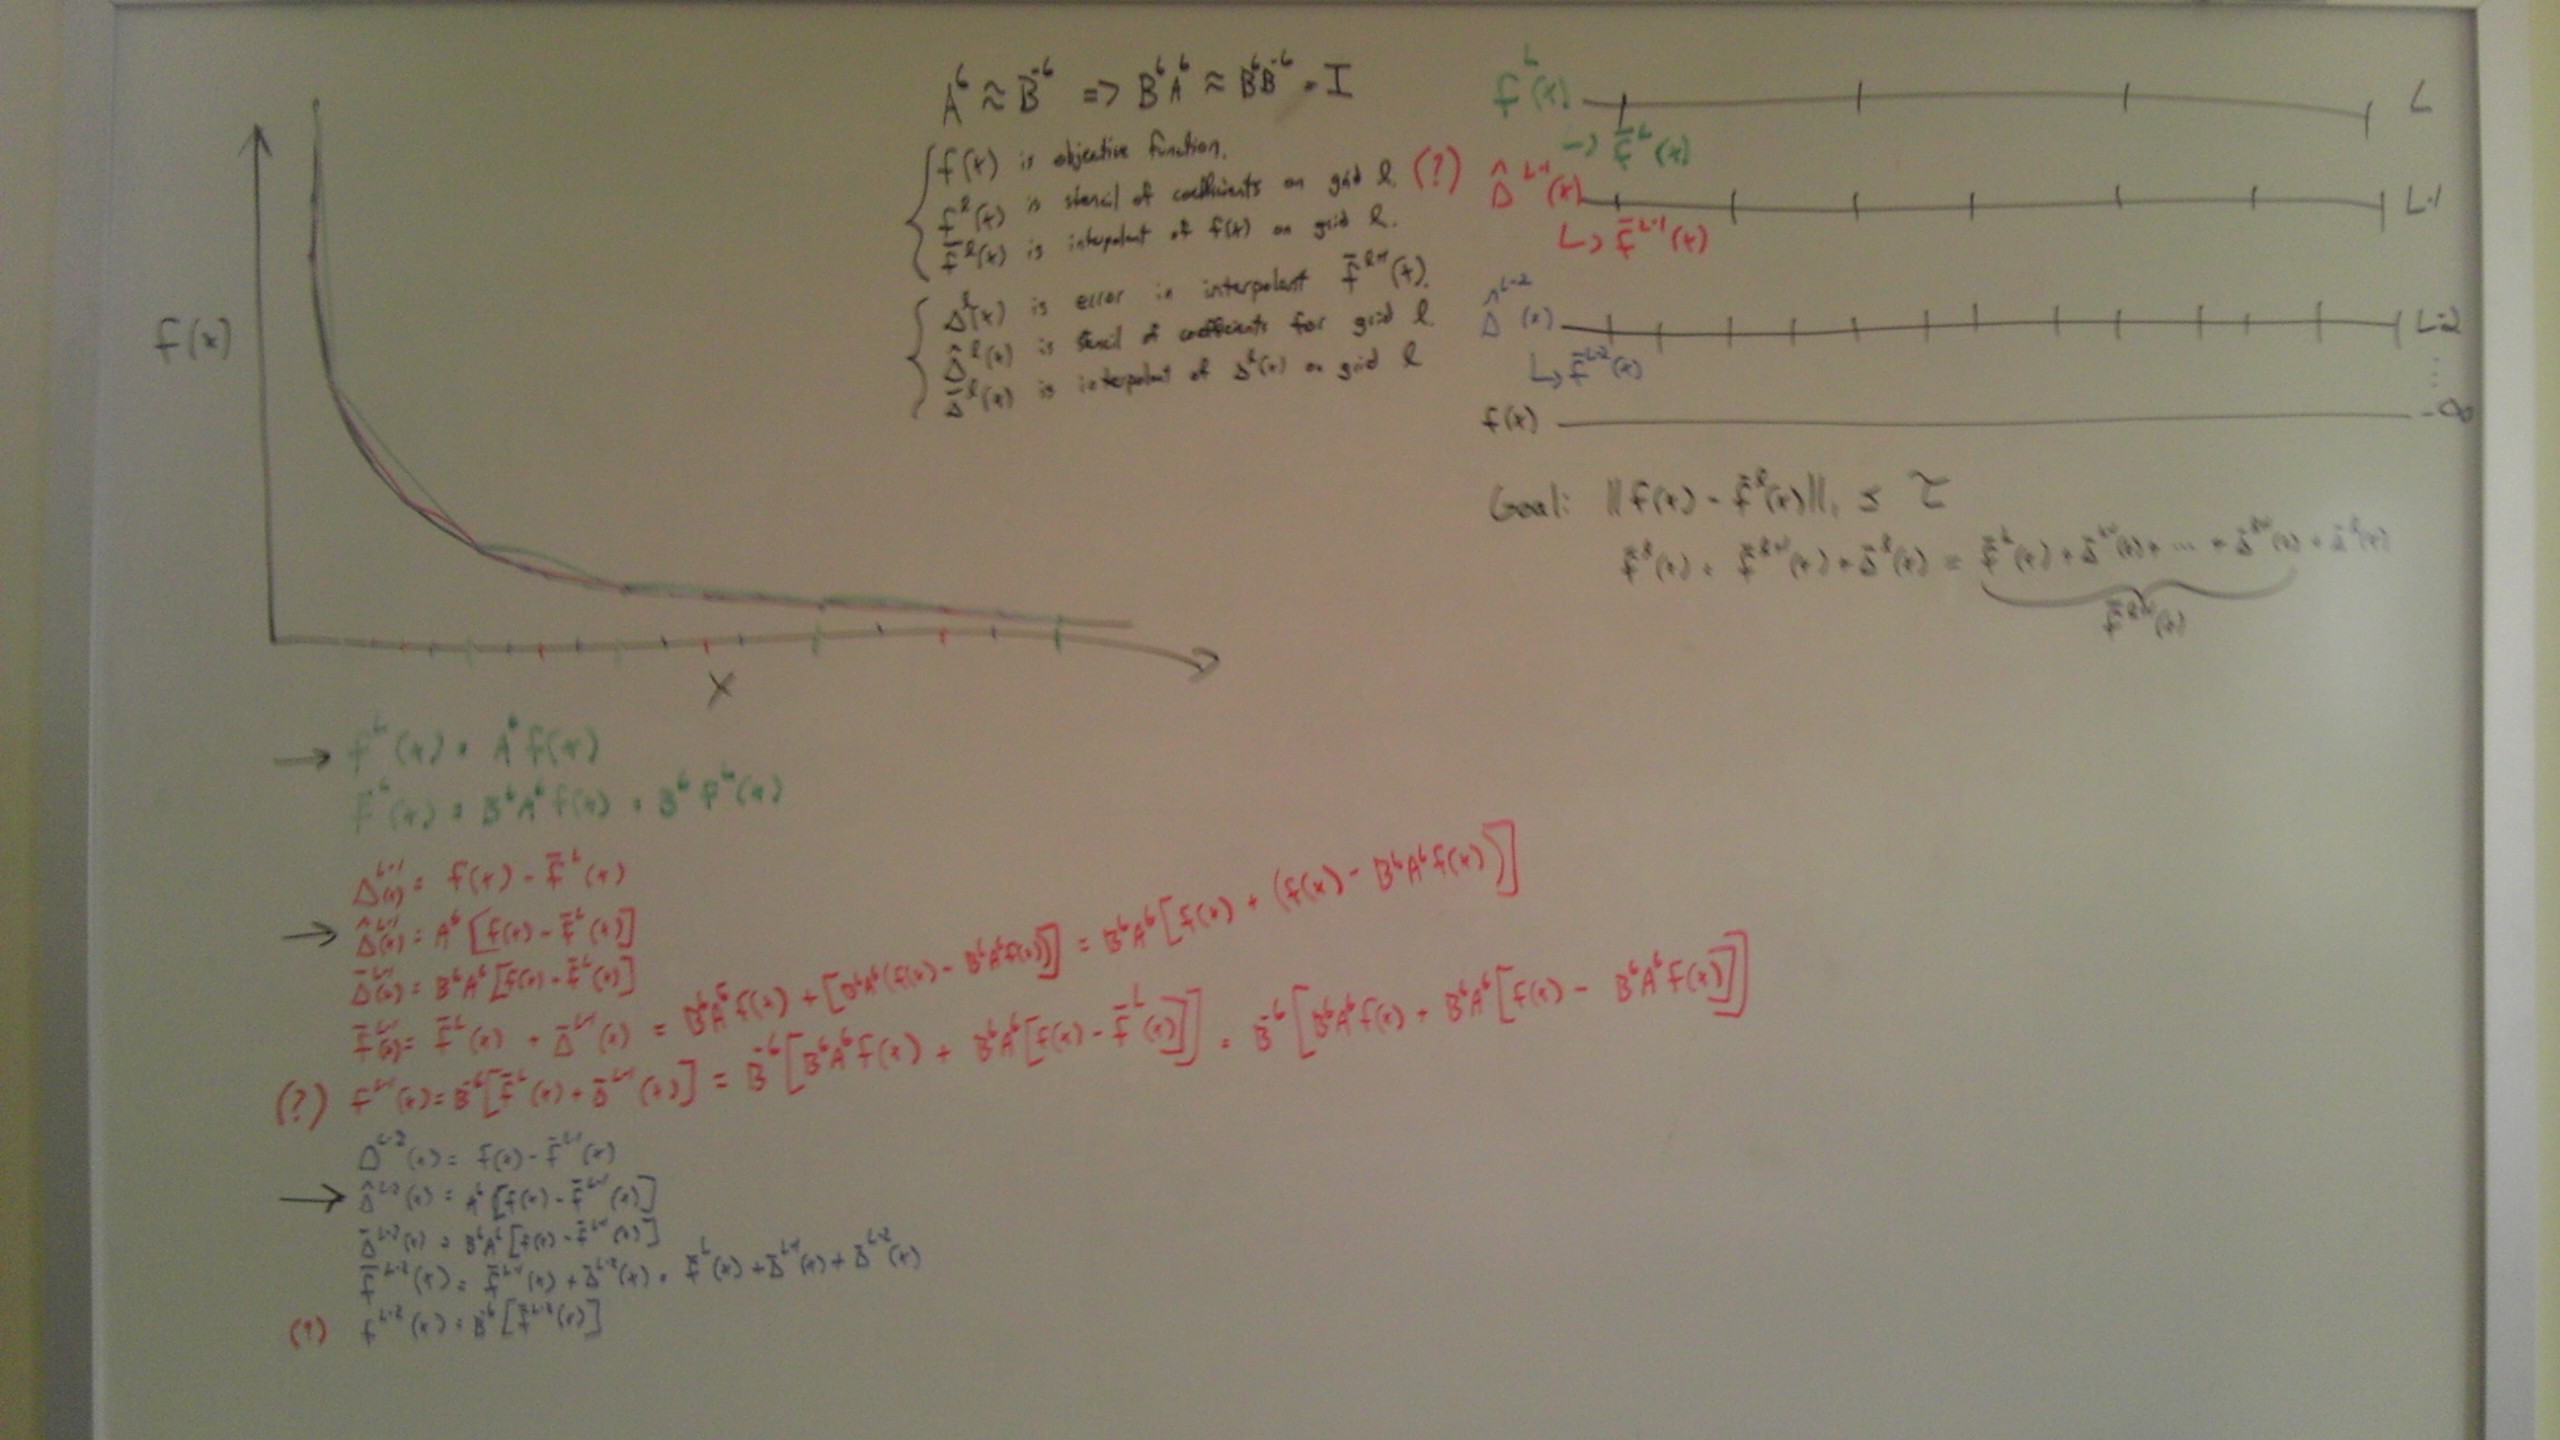 A⁶ ≈ B⁻⁶ => B⁶A⁶ ≈ B⁶B⁻⁶ = I
f(x) is objective function.
f^ℓ(x) is stencil of coefficients on grid ℓ. (?)
f̄^ℓ(x) is interpolant of f(x) on grid ℓ.
Δ^ℓ(x) is error in interpolant f̄^ℓ⁺¹(x).
Δ̂^ℓ(x) is stencil of coefficients for grid ℓ
Δ̄^ℓ(x) is interpolant of Δ^ℓ(x) on grid ℓ
f(x)
X
f^L(x) L
-> f̄^L(x)
Δ̂^L-1(x) L-1
L> f̄^L-1(x)
Δ̂^L-2(x) L-2
L> f̄^L-2(x)
f(x) -∞
Goal: ||f(x) - f̄^ℓ(x)||₁ ≤ τ
f̄^ℓ(x) = f̄^ℓ⁺¹(x) + Δ̄^ℓ(x) = f̄^L(x) + Δ̄^L-1(x) + ... + Δ̄^ℓ⁺¹(x) + Δ̄^ℓ(x)
f̄^ℓ⁺¹(x)
-> f^L(x) = A⁶f(x)
f̄^L(x) = B⁶A⁶f(x) = B⁶f^L(x)
Δ^L-1(x) = f(x) - f̄^L(x)
-> Δ̂^L-1(x) = A⁶[f(x) - f̄^L(x)]
Δ̄^L-1(x) = B⁶A⁶[f(x) - f̄^L(x)]
f̄^L-1(x) = f̄^L(x) + Δ̄^L-1(x) = B⁶A⁶f(x) + [B⁶A⁶(f(x) - B⁶A⁶f(x))] = B⁶A⁶[f(x) + (f(x) - B⁶A⁶f(x))]
(?) f^L-1(x) = B⁻⁶[f̄^L(x) + Δ̄^L-1(x)] = B⁻⁶[B⁶A⁶f(x) + B⁶A⁶[f(x) - f̄^L(x)]] = B⁻⁶[B⁶A⁶f(x) + B⁶A⁶[f(x) - B⁶A⁶f(x)]]
Δ^L-2(x) = f(x) - f̄^L-1(x)
-> Δ̂^L-2(x) = A⁶[f(x) - f̄^L-1(x)]
Δ̄^L-2(x) = B⁶A⁶[f(x) - f̄^L-1(x)]
f̄^L-2(x) = f̄^L-1(x) + Δ̄^L-2(x) = f̄^L(x) + Δ̄^L-1(x) + Δ̄^L-2(x)
(?) f^L-2(x) = B⁻⁶[f̄^L-2(x)]